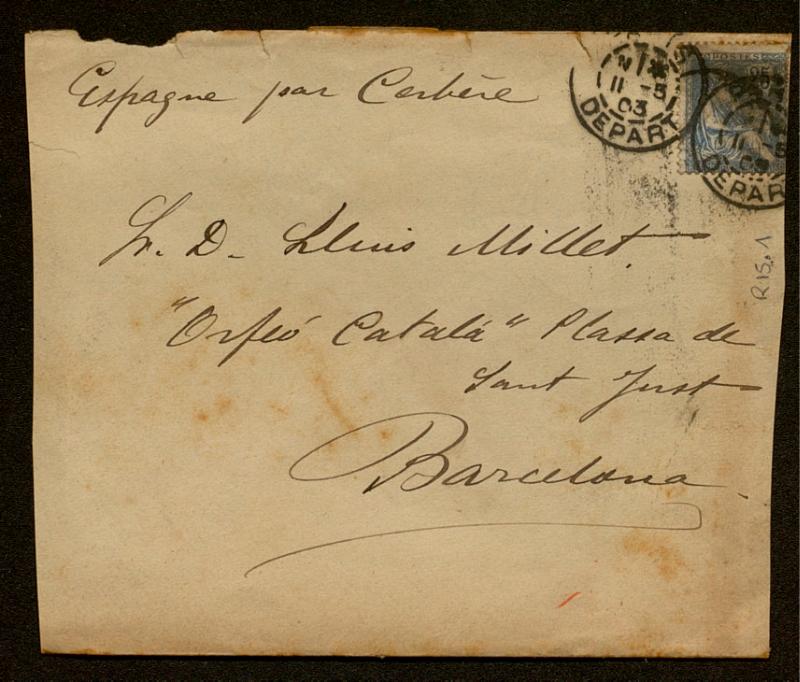 Espagne par Cerbère
11 -5
03
DEPART
POSTES
25
11 -5
03
DEPAR
Sr. D. Lluis Millet.
"Orfeó Catalá" Plassa de
Sant Just
Barcelona.
R15.1